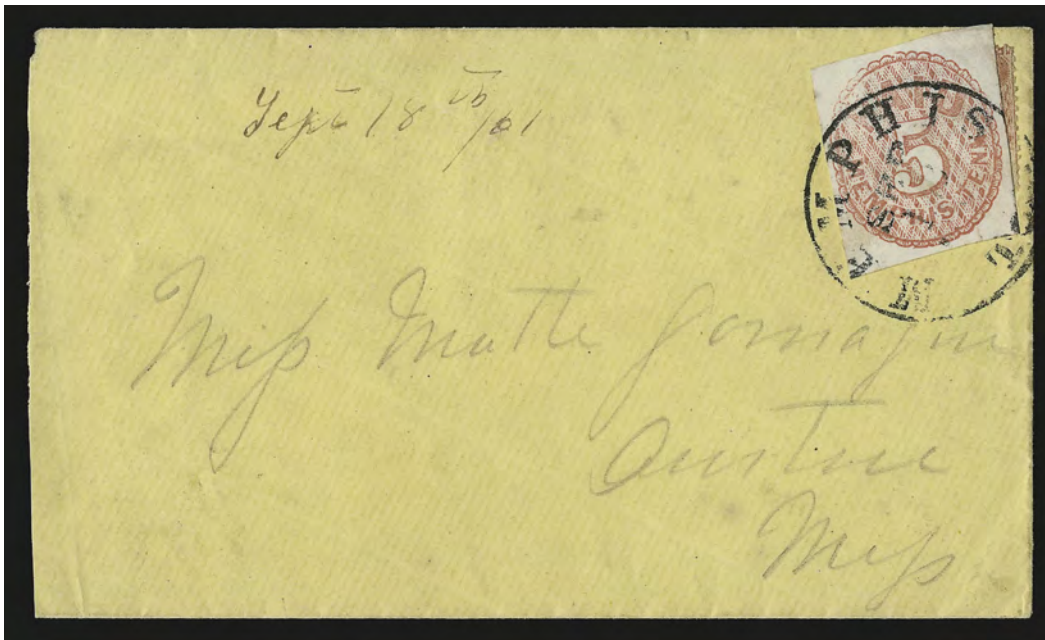 Sept 18th/61
MEMPHIS
5
MEMPHIS TENN
Miss Mattie
Austin
Miss